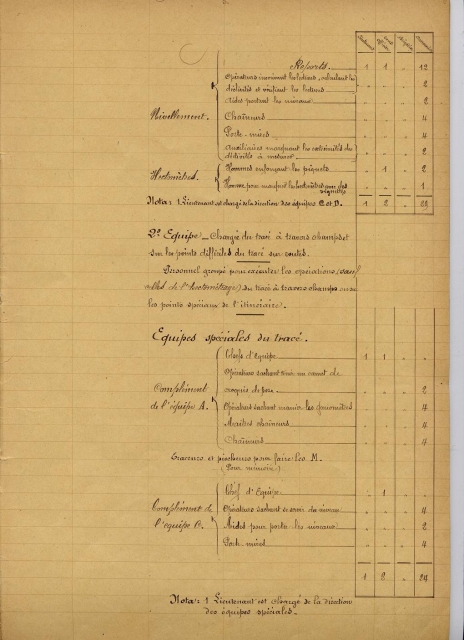 Reports. 1 1 " 12
Opérateurs inscrivant les lectures, calculant les
distantes et vérifiant les lectures " " " 2
Aides portant les niveaux " " " 2
Nivellement. Chaîneurs " " " 4
Porte-mires " " " 4
Auxiliaires marquant les extrémités des
dénivelés à mesurer " " " 2
Hectomètres. Hommes enfonçant les piquets " 1 " 2
Homme pour marquer les hectomètres sur les
piquets " " " 1
Nota: 1 Lieutenant est chargé de la direction des équipes C et D. 1 2 " 29
2e Equipe _ Chargée du tracé à travers champs et
sur les points difficiles du tracé sur routes.
Personnel groupé pour exécuter les opérations (sauf
celles de l'hectométrage) du tracé à travers champs ou sur
les points spéciaux de l'itinéraire.
Equipes spéciales du tracé.
Chefs d'équipe 1 1 " "
Opérateurs sachant tenir un carnet de
Complément croquis de pose " " " 2
de l'équipe A. Opérateurs sachant manier les goniomètres " " " 4
Maîtres chaîneurs " " " 4
Chaîneurs " " " 4
Traceurs et piocheurs pour faire les M.
(Pour mémoire)
Chef d'équipe " 1 " "
Complément de Opérateurs sachant se servir du niveau " " " 4
l'équipe C. Aides pour porter les niveaux " " " 2
Porte-mires " " " 4
1 2 " 24
Nota: 1 Lieutenant est chargé de la direction
des équipes spéciales.